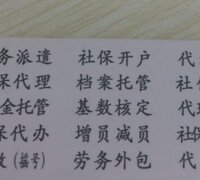 务派遣 社保开户 代
保代理 档案托管 社
金托管 基数核定 代理
保代办 增员减员 社保
(摇号) 劳务外包 代